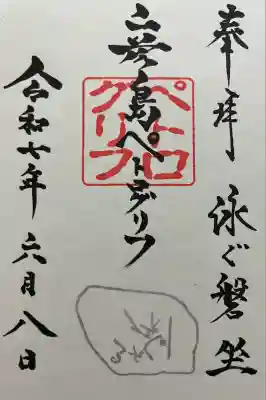 奉拝 泳ぐ磐坐
島ペトログリフ
ペトロ
グリフ
令和七年 六月八日